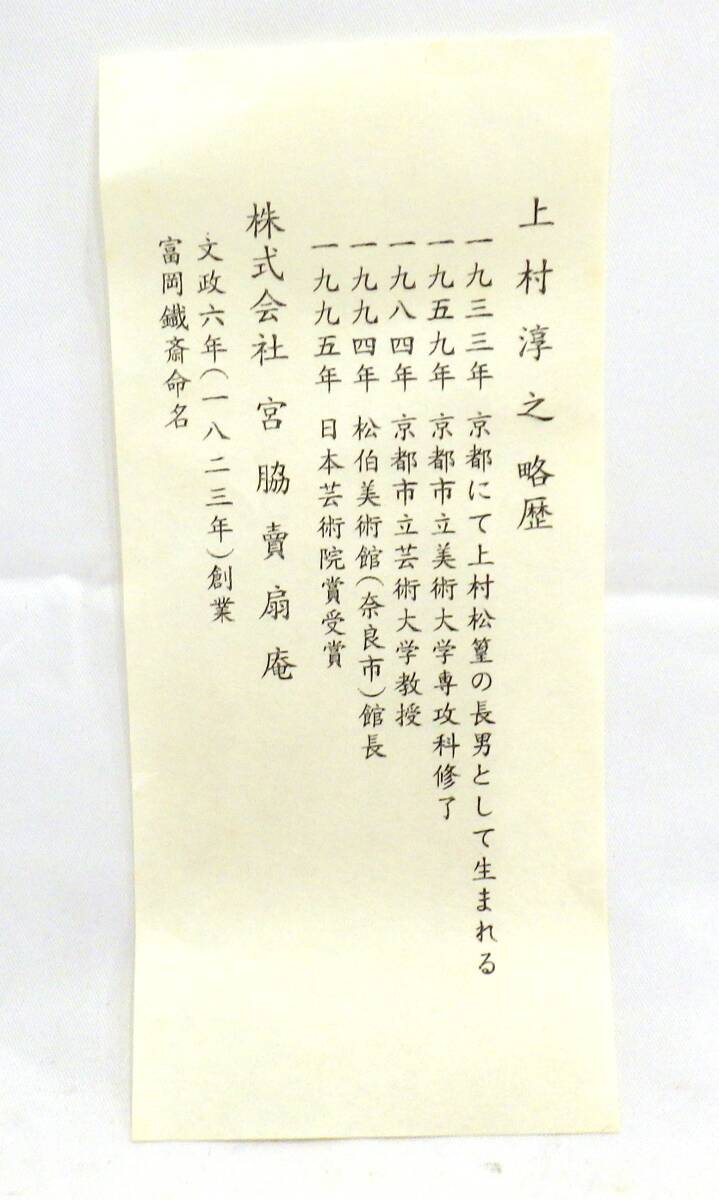 上村淳之略歴
一九三三年 京都にて上村松篁の長男として生まれる
一九五九年 京都市立美術大学専攻科修了
一九八四年 京都市立芸術大学教授
一九九四年 松伯美術館(奈良市)館長
一九九五年 日本芸術院賞受賞
株式会社 宮脇賣扇庵
文政六年(一八二三年)創業
富岡鐵斎命名